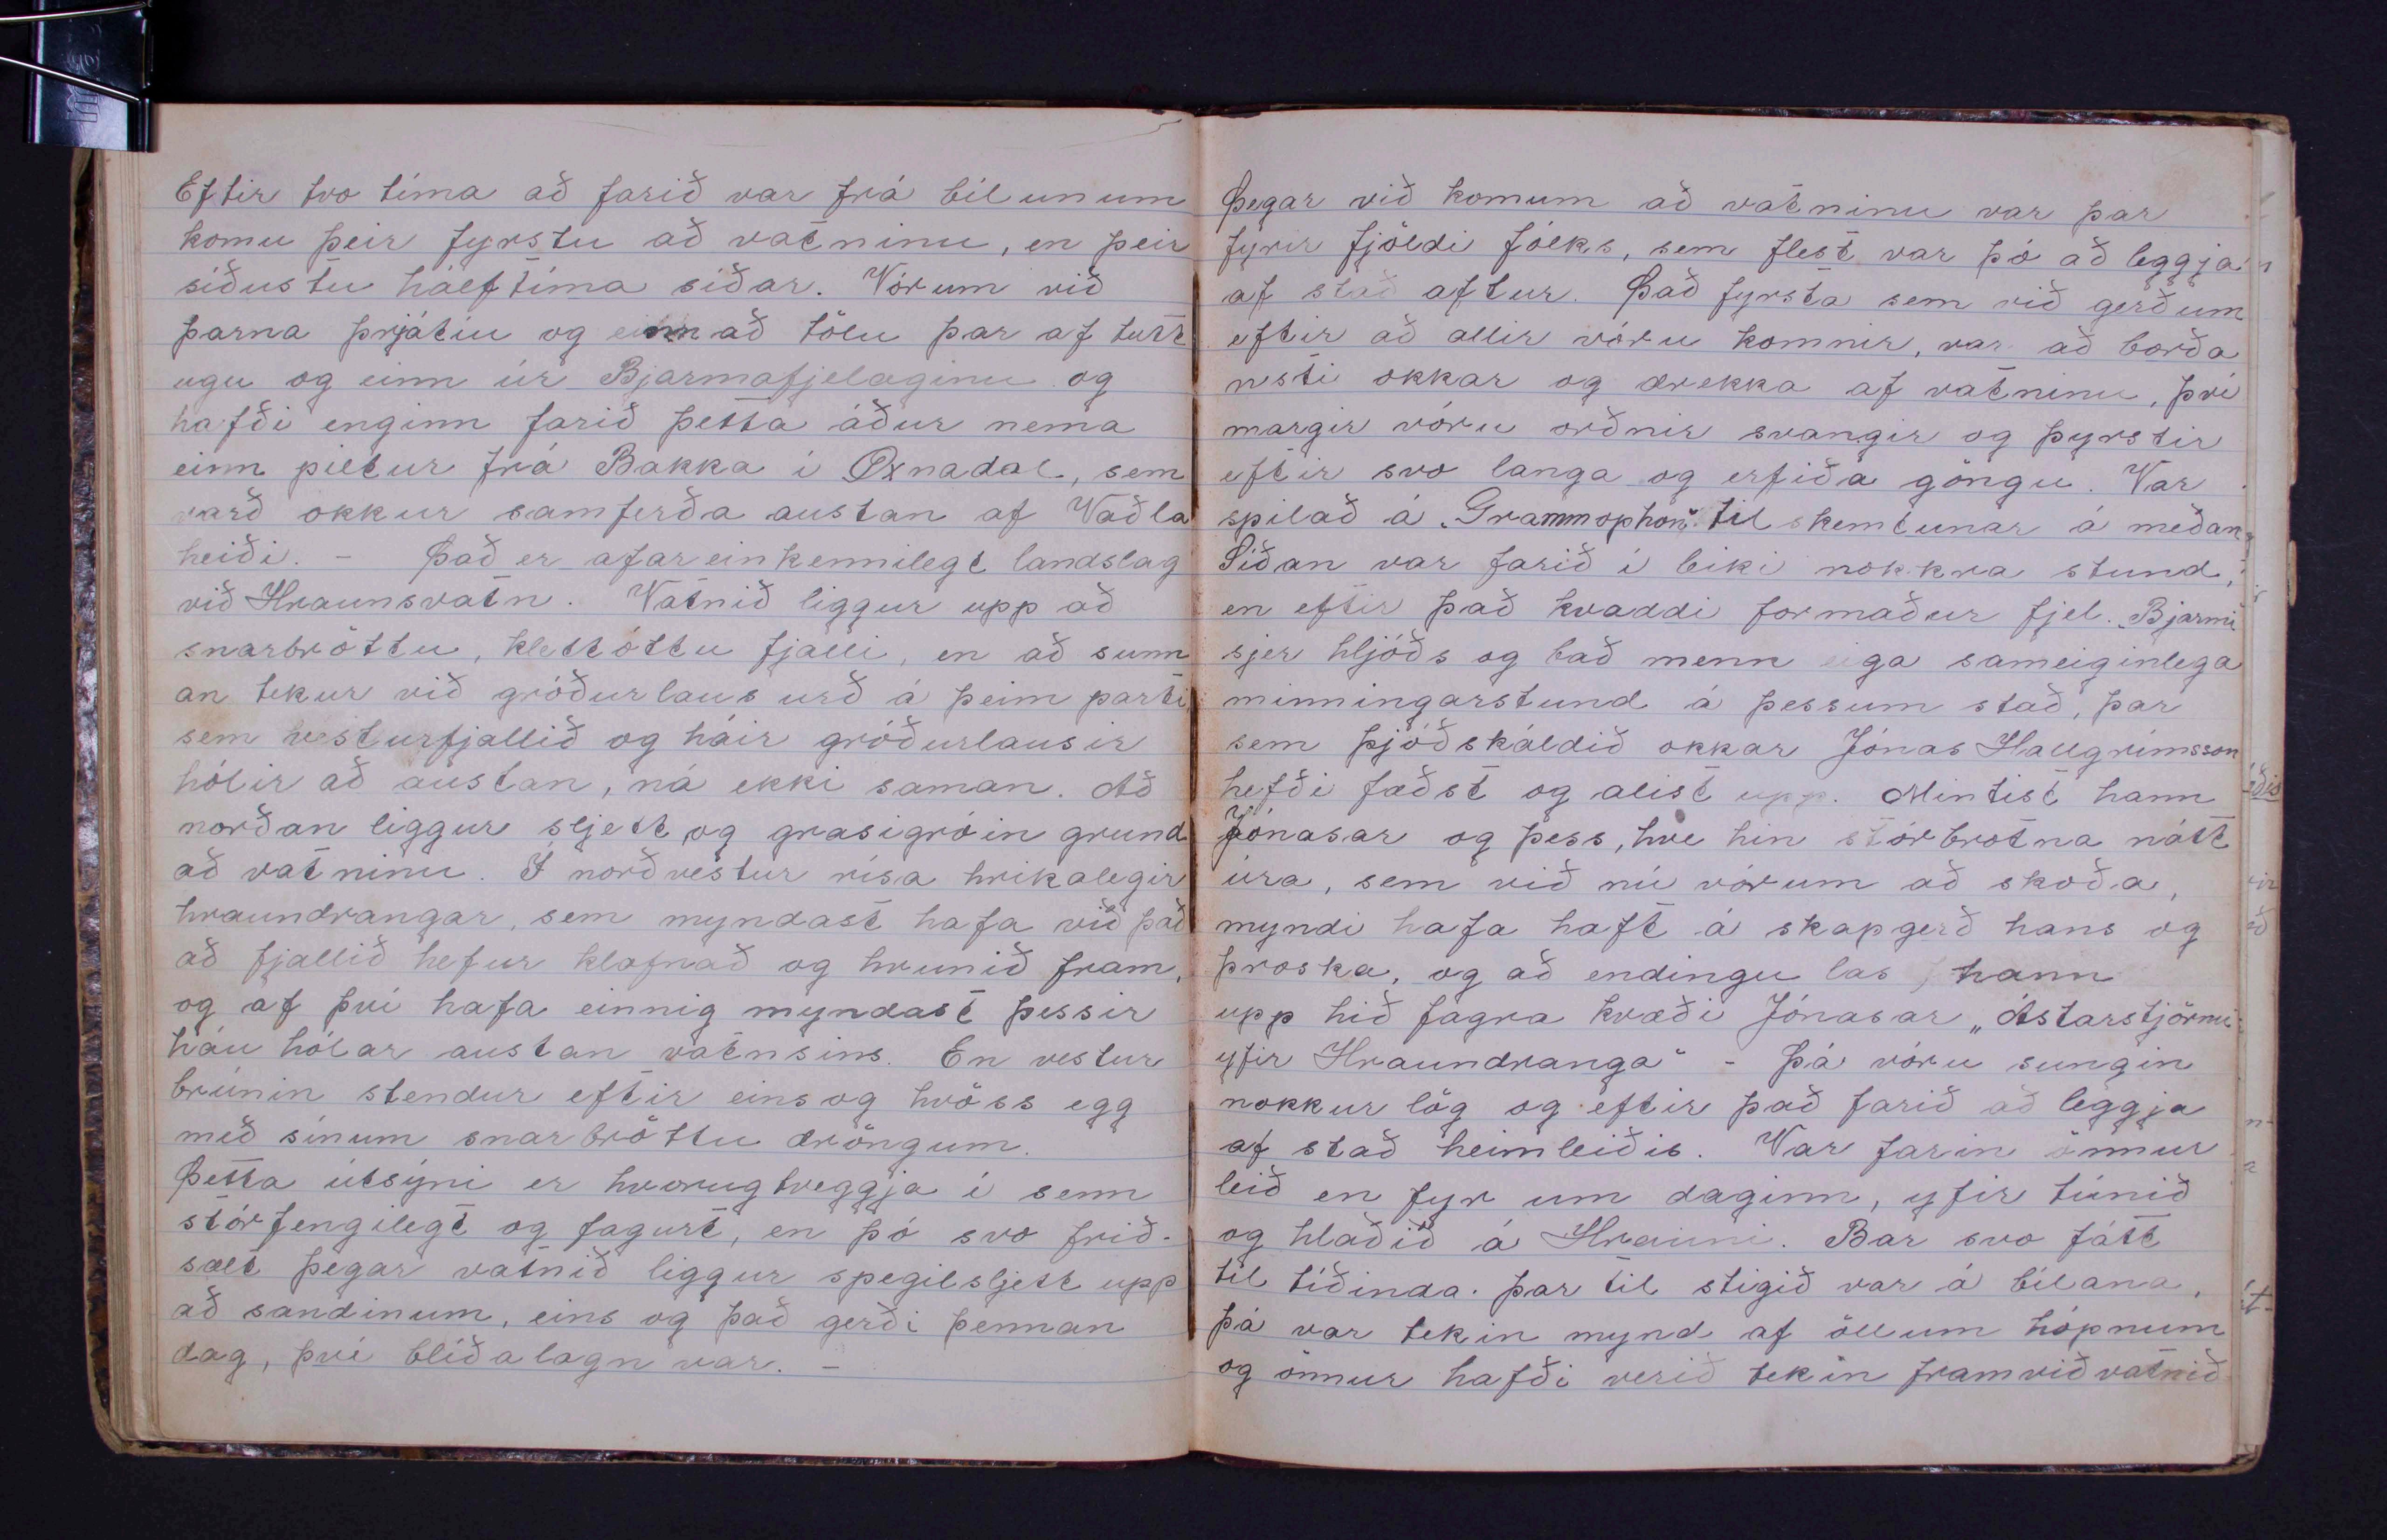 Eftir tvo tíma að farið var frá bílunum
komu þeir fyrstu að vatninu, en þeir
síðustu hálftíma síðar. Vórum við
þarna þrjátíu og einn að tölu þar af tutt
ugu og einn úr Bjarmafjelaginu og
hafði enginn farið þetta áður nema
einn piltur frá Bakka í Øxnadal, sem
varð okkur samferða austan af Vaðla
heiði. - Það er afar einkennilegt landslag
við Hraunsvatn. Vatnið liggur upp að
snarbröttu, klettóttu fjalli, en að sunn
an tekur við gróðurlaus urð á þeim parti,
sem vesturfjallið og háir gróðurlausir
hólir að austan, ná ekki saman. Að
norðan liggur sljett og grasigróin grund
að vatninu. Í norðvestur rísa hrikalegir
hraundrangar, sem myndast hafa við það
að fjallið hefur klofnað og hrunið fram,
og af því hafa einnig myndast þessir
háu hólar austan vatnsins. En vestur
brúnin stendur eftir eins og hvöss egg
með sínum snarbröttu dröngum.
Þetta útsýni er hvorugtveggja í senn
stórfengilegt og fagurt, en þó svo frið-
sælt þegar vatnið liggur spegilsljett upp
að sandinum, eins og það gerði þennan
dag, því blíðalogn var. -
Þegar við komum að vatninu var þar
fyrir fjöldi fólks, sem flest var þó að leggja
af stað aftur. Það fyrsta sem við gerðum
eftir að allir vóru komnir, var að borða
nesti okkar og drekka af vatninu, því
margir vóru orðnir svangir og þyrstir
eftir svo langa og erfiða göngu. Var
spilað á „Grammophon" til skemtunar á meðan
Síðan var farið í leiki nokkra stund,
en eftir það kvaddi formaður fjel. „Bjarmi
sjer hljóðs og bað menn eiga sameiginlega
minningarstund á þessum stað, þar
sem þjóðskáldið okkar Jónas Hallgrímsson
hefði fæðst og alist upp. Mintist hann
Jónasar og þess, hve hin stórbrotna nátt
úra, sem við nú vórum að skoða,
myndi hafa haft á skapgerð hans og
þroska, og að endingu las hann
upp hið fagra kvæði Jónasar „Ástarstjörnu
yfir Hraundranga" - Þá vóru sungin
nokkur lög og eftir það farið að leggja
af stað heimleiðis. Var farin önnur
leið en fyr um daginn, yfir túnið
og hlaðið á Hrauni. Bar svo fátt
til tíðinda. þar til stigið var á bílana,
þá var tekin mynd af öllum hópnum
og önnur hafði verið tekin fram við vatnið